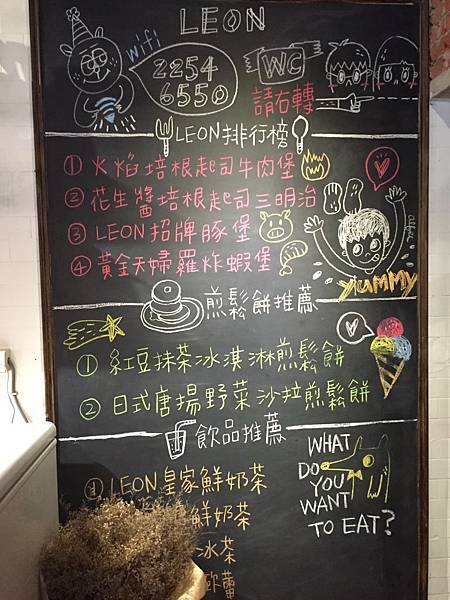 LEON
wifi
2254
6550
WC
請右轉
LEON排行榜
① 火焰培根起司牛肉堡
② 花生醬培根起司三明治
③ LEON招牌豚堡
④ 黃金天婦羅炸蝦堡
YUMMY
煎鬆餅推薦
① 紅豆抹茶冰淇淋煎鬆餅
② 日式唐揚野菜沙拉煎鬆餅
飲品推薦
① LEON皇家鮮奶茶
鮮奶茶
冰茶
歐蕾
WHAT
DO
YOU
WANT
TO EAT?